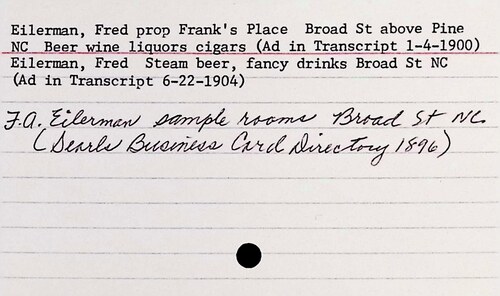 Eilerman, Fred prop Frank's Place  Broad St above Pine
NC  Beer wine liquors cigars (Ad in Transcript 1-4-1900)
Eilerman, Fred  Steam beer, fancy drinks Broad St NC
(Ad in Transcript 6-22-1904)
F.A. Eilerman sample rooms Broad St NC.
(Searls Business Card Directory 1896)